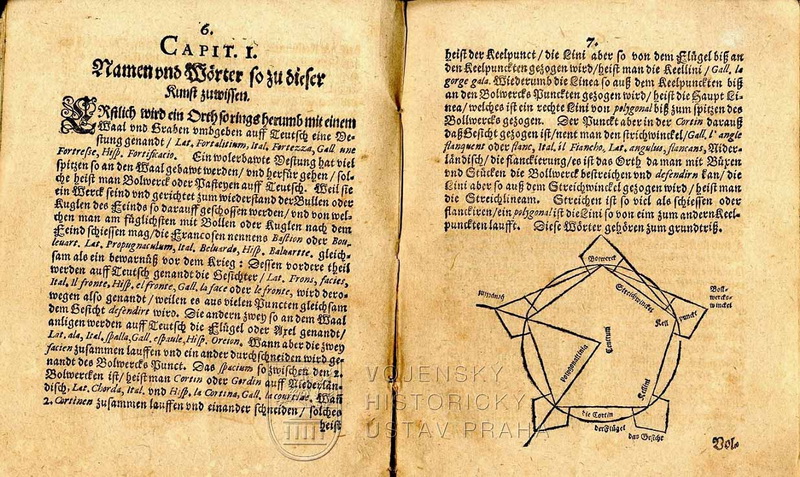 6.
CAPIT. I.
Namen vnd Wörter so zu dieser
Kunst zuwissen.
ERstlich wird ein Orth so rings herumb mit einem
Waal vnd Graben vmbgeben auff Teutsch eine Ve-
stung genandt / Lat. Fortalitium, Ital. Fortezza, Gall une
Fortresse, Hisp. Fortificacio. Ein wolerbawte Vestung hat viel
spitzen so an den Waal gebawt werden / vnd herfür gehen / sol-
che heist man Bolwerck oder Pasteyen auff Teutsch. Weil sie
ein Werck seind vnd gerichtet zum wiederstand der Bullen oder
Kuglen des Feinds so darauff geschossen werden / vnd von wel-
chen man am füglichsten mit Bollen oder Kuglen nach dem
Feind schiessen mag / die Francosen nennens Bastion oder Bou-
leuart. Lat. Propugnaculum, Ital. Beluardo, Hisp. Baluartte. gleich-
sam als ein bewarnüß vor dem Krieg: Dessen vordere theil
werden auff Teutsch genandt die Gesichter / Lat. Frons, facies,
Ital, il fronte, Hisp, el fronte, Gall, la face oder le fronte, wird dero-
wegen also genandt / weilen es aus vielen Puncten gleichsam
dem Gesicht defendirt wird. Die andern zwey so an dem Waal
anligen werden auff Teutsch die Flügel oder Axel genandt /
Lat. ala, Ital. spalla, Gall. espaule, Hisp. Oreion. Wann aber die zwey
facien zusammen lauffen vnd ein ander durchschneiden wird ge-
nandt des Bolwercks Punct. Das spacium so zwischen den 2.
Bolwercken ist / heist man Cortin oder Gordin auff Niederlän-
disch, Lat. Chorda, Ital. vnd Hisp. la Cortina, Gall. la courtine. Wañ
2. Cortinen zusammen lauffen vnd einander schneiden / solches
heist
7.
heist der Keelpunct / die Lini aber so von dem Flügel biß an
den Keelpuncten gezogen wird / heist man die Keellini / Gall. la
gorge gala. Wiederumb die Linea so auß dem Keelpuncten biß
an den Bolwercks Puncten gezogen wird / heist die Haupt Li-
nea / welches ist ein rechte Lini von polygonal biß zum spitzen des
Bollwercks gezogen. Der Punckt aber in der Cortin darauß
daß Gesicht gezogen ist / nent man den strichwinckel / Gall, l' angle
flanquent oder flanc, Ital. il Fiancho, Lat. angulus, flancans, Nider-
ländisch / die flanckierung / es ist das Orth da man mit Büxen
vnd Stücken die Bollwerck bestreichen vnd defendirn kan / die
Lini aber so auß dem Streichwinckel gezogen wird / heist man
die Streichlineam. Streichen ist so viel als schiessen oder
flanckiren / ein polygonal ist die Lini so von eim zum andern Keel-
puncten laufft. Diese Wörter gehören zum grundtriß.
Bolwerck
Streichwinckel
Boll-
wercks-
winckel
Kell
puncte
Centrum
polygonallinia
Kellini
die Cortin
der Flügel
das Gesichte
Vol-
VOJENSKÝ
HISTORICKÝ
ÚSTAV PRAHA